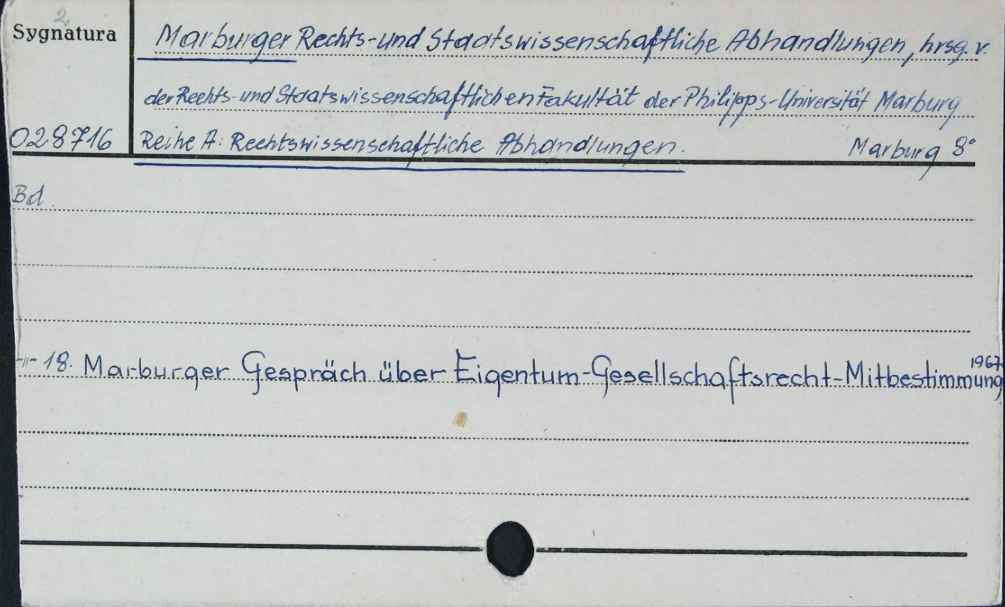 2
Sygnatura
Marburger Rechts- und Staatswissenschaftliche Abhandlungen, hrsg. v.
der Rechts- und Staatswissenschaftlichen Fakultät der Philipps-Universität Marburg
028716
Reihe A: Rechtswissenschaftliche Abhandlungen. Marburg 8°
Bd
-"- 18. Marburger Gespräch über Eigentum-Gesellschaftsrecht-Mitbestimmung, 1967